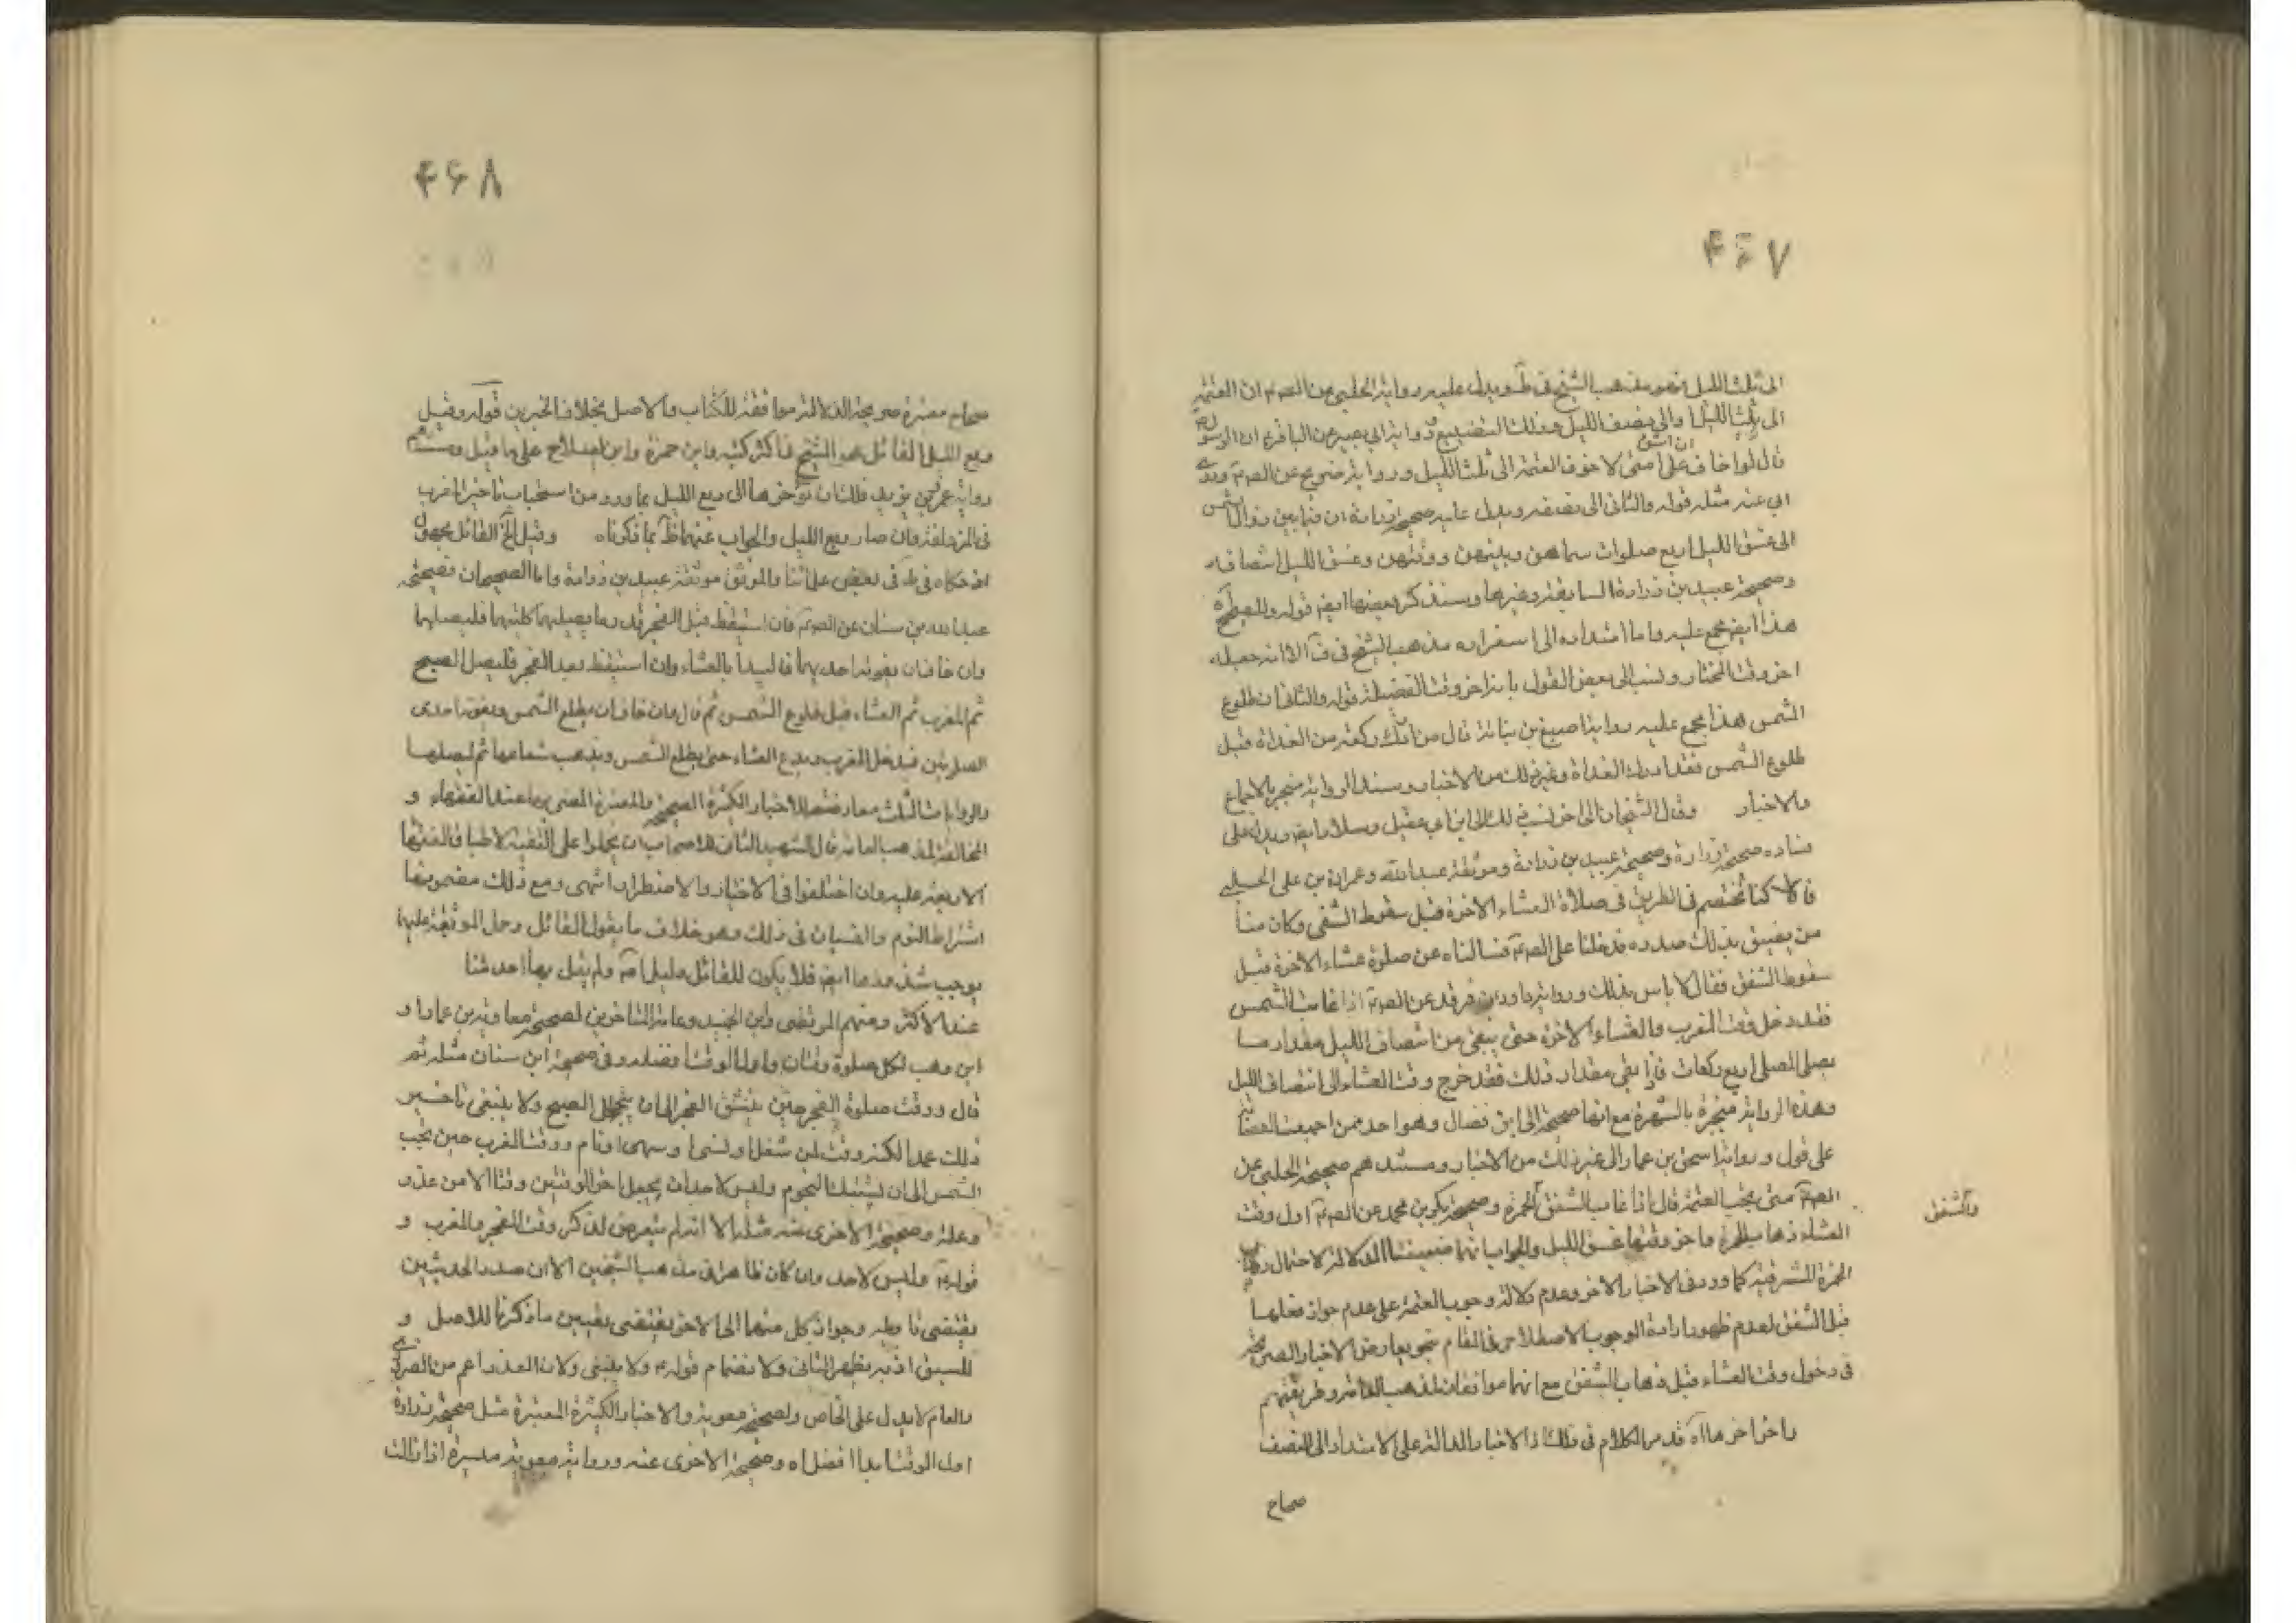 ۴۶۷
الى ثلث الليل فهو مذهب الشيخ فى ط ويدل عليه رواية الحلبى عن الصم ان العتمة
الى ثلث الليل او الى نصف الليل وذلك التضييع ورواية ابى بصير عن الباقر ان الرسول
قال لولا خاف ان اشق على امتى لاخرت العتمة الى ثلث الليل ورواية ذريح عن الصم
مثله قوله والثانى الى نصفه ويدل عليه صحيحة زرارة ان فيما بين زوال الشمس
الى غسق الليل اربع صلوات سماهن وبينهن ووقتهن وغسق الليل انتصافه
وصحيحة عبيد بن زرارة السابقة وغيرها وسنذكر بعضها ايضا قوله وللصبح
هذا ايضا مجمع عليه واما امتداده الى اسفراره مذهب الشيخ فى الا انه جعله
اخر وقت المختار ونسب الى بعض القول بانه اخر وقت الفضيلة قوله والثانى طلوع
الشمس هذا مجمع عليه رواية اصبغ بن نباتة قال من ادرك ركعة من الغداة قبل
طلوع الشمس فقد ادرك الغداة وغير ذلك من الاخبار وسند الرواية منجبر بالاجماع
والاخبار وقال الشيخان الى اخر نسب ذلك الى ابن ابى عقيل وسلار ايضا ويدل على
فساده صحيحة زرارة وصحيحة عبيد بن زرارة وموثقة عبيد الله وعمران بن على الحلبى
قالا كنا نختصم فى الطريق فى صلاة العشاء الاخرة قبل سقوط الشفق وكان منا
من يضيق بذلك صدره فدخلنا على الصم فسالناه عن صلوة عشاء الاخرة قبل
سقوط الشفق فقال لا باس بذلك ورواية داود بن فرقد عن الصم اذا غابت الشمس
فقد دخل وقت المغرب والعشاء الاخرة حتى يبقى من انتصاف الليل مقدار ما
يصلى المصلى اربع ركعات فاذا بقى مقدار ذلك فقد خرج وقت العشاء الى انتصاف الليل
وهذه الرواية منجبرة بالشهرة مع انها صحيحة الى ابن فضال وهو احد ممن اجمعت العصابة
على قول ورواية اسحق بن عمار الى غير ذلك من الاخبار ومستندهم صحيحة الحلبى عن
الصم متى يجب العتمة قال اذا غاب الشفق الحمرة وصحيحة بكر بن محمد عن الصم اول وقت
والشفق
العشاء ذهاب الحمرة واخر وقتها غسق الليل والجواب انهما ضعيفتا الدلالة لاحتمال
الحمرة المشرقية كما ورد فى الاخبار الاخر وعدم دلالة وجوب العتمة على عدم جواز فعلها
قبل الشفق لعدم ظهور ارادة الوجوب الاصطلاحى فى المقام بنحو يعارض الاخبار الصريحة
فى دخول وقت العشاء قبل ذهاب الشفق مع انهما موافقان لمذهب العامة وطريقتهم
واخر اخرها اه قد مر الكلام فى ذلك اذ الاخبار الدالة على الامتداد الى النصف
صحاح
۴۶۸
صحاح معتبرة صريحة الدلالة موافقة للكتاب والاصل بخلاف الخبرين قوله وقيل
ربع الليل القائل هو الشيخ فى اكثر كتبه وابن حمزة وابن الصلاح على ما قيل ومستندهم
رواية عمر بن يزيد فلك ان تؤخرها الى ربع الليل بما ورد من استحباب تاخير المغرب
فى المزدلفة وان صار ربع الليل والجواب عنهما ظاهر بما ذكرناه وقيل الخ القائل مجهول
حكاه فى ط فى بعض علمائنا والموثق موثقة عبيد بن زرارة واما الصحيحان فصحيحة
عبد الله بن سنان عن الصم فان استيقظ قبل الفجر قدر ما يصليهما كلتيهما فليصلهما
وان خاف ان يفوته احديهما فليبدا بالعشاء وان استيقظ بعد الفجر فليصل الصبح
ثم المغرب ثم العشاء قبل طلوع الشمس ثم قال فان خاف ان يطلع الشمس ويفوته احدى
الصلوتين فيصل المغرب ويدع العشاء حتى يطلع الشمس ويذهب شعاعها ثم ليصلها
والروايات الثلث معارضة للاخبار الكثيرة الصحيحة والمعتبرة المفتى بها عند الفقهاء و
المخالفة لمذهب العامة قال الشهيد الثانى للاصحاب ان يحملوا على التقية لاطباق الفقهاء
الاربعة عليه وان اختلفوا فى الاختيار والاضطرار انتهى ومع ذلك مضمونها
اشتراط النوم والنسيان فى ذلك وهو خلاف ما يقول القائل وحمل الموثقة عليهما
يوجب شذوذها ايضا فلا يكون للقائل دليل اه ولم يقل بها احد منا
عند الاكثر ومنهم المرتضى وابن الجنيد وعامة المتاخرين لصحيحة معاوية بن عمار او
ابن وهب لكل صلوة وقتان واول الوقت افضله وفى صحيحة ابن سنان مثله ثم
قال ووقت صلوة الفجر حين ينشق الفجر الى ان يتجلل الصبح ولا ينبغى تاخير
ذلك عمدا لكنه وقت لمن شغل او نسى او سهى او نام ووقت المغرب حين يجب
الشمس الى ان يشتبك النجوم وليس لاحد ان يجعل اخر الوقتين وقتا الا من عذر
وعلة وصحيحة الاخرى عنه مثله الا انه لم يتعرض لذكر وقت الفجر والمغرب و
قوله وليس لاحد وان كان ظاهرا فى مذهب الشيخين الا ان صدر الحديثين
يقتضى تاويله وجواز كل منهما الى الاخر يقتضى تعيين ما ذكرنا للاصل و
للسبق اذ به يظهر الثانى ولانضمام قوله ولا ينبغى ولان العذر اعم من الضرورى
والعام لا يدل على الخاص ولصحيحة معوية والاخبار الكثيرة المعتبرة مثل صحيحة زرارة
اول الوقت ابدا افضل اه وصحيحة الاخرى عنه ورواية معوية بن ميسرة اذا زالت